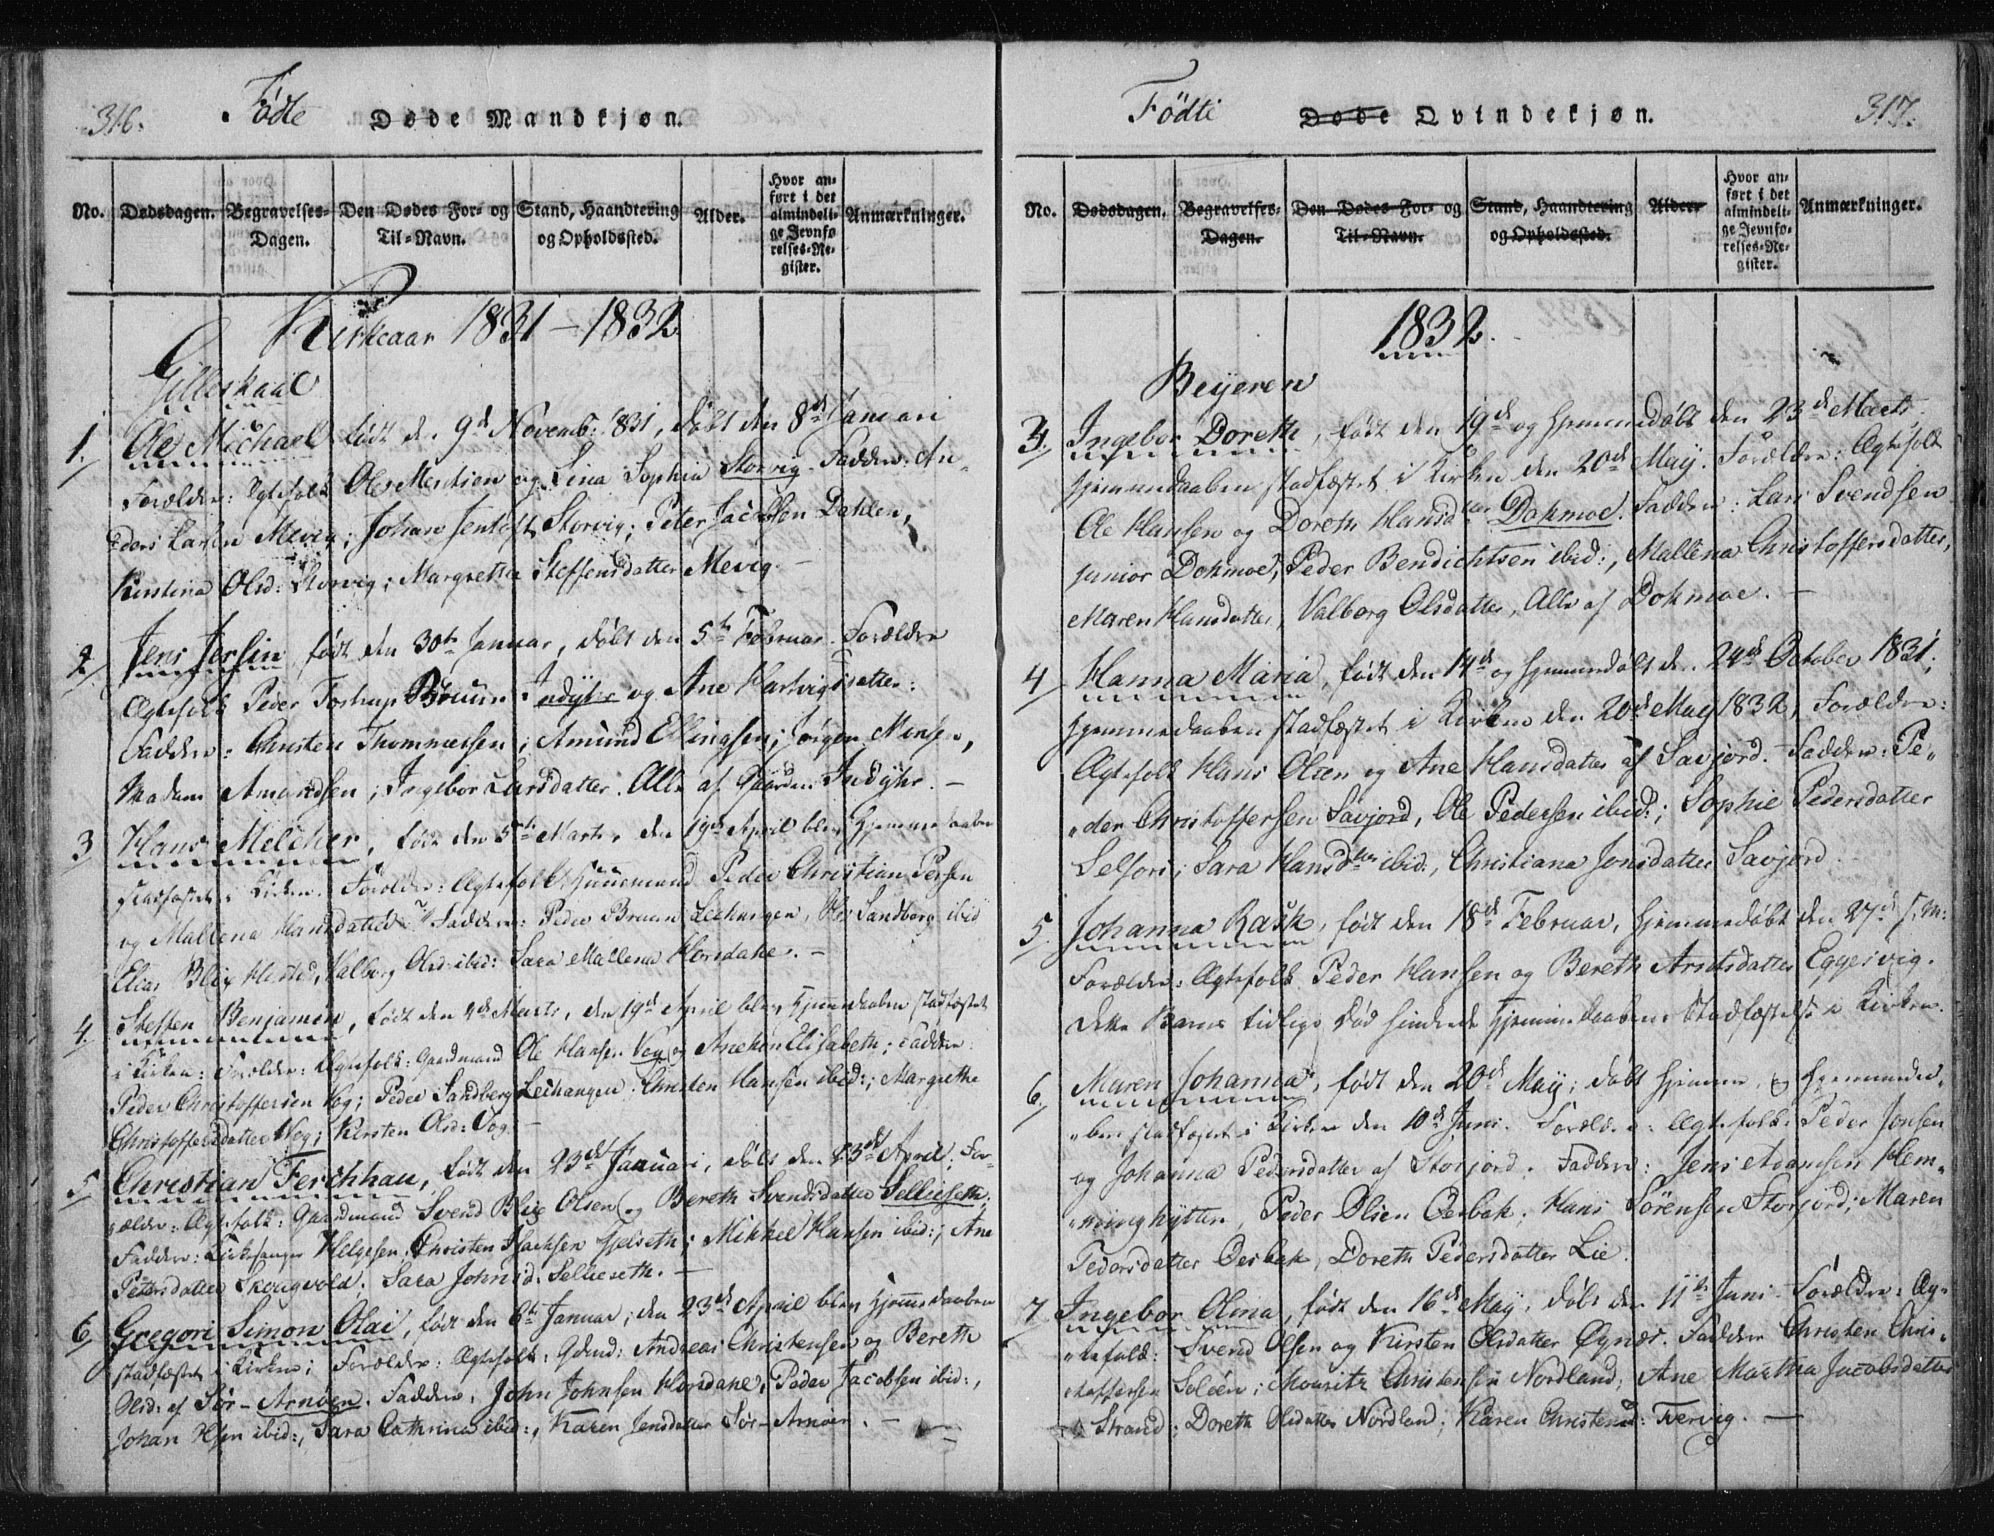 316. Födte Døde Mandkjøn.
No. Dødsdagen. Begravelses-Dagen. Den Dødes For- og Til-Navn. Stand, Haandtering og Opholdssted. Alder. Hvor anført i det almindelige Jevnførelses-Register. Anmærkninger.
Kirkeaar 1831 – 1832
Gilleskaal
1. Ole Michael født den 9de Novemb: 1831, døbt den 8de Januari
Forældre: Ægtefolk Ole Mentien og Lina Sophia Storvig. Faddere: An-
ders Larsen Mevig; Johan Jentoft Storvig; Peter Jacobsen Dahlen,
Kirstina Olsd: Storvig; Margrethe Steffensdatter Mevig. –
2/ Jens Jersin, født den 30te Januar, døbt den 5te Februar. Forældre
Ægtefolk Peder Tostrup Bruun Indyhr og Ane Hartvigsdatter:
Faddere: Christen Thommessen; Amund Ellingsen; Jörgen
Madam Amundsen; Ingebor Larsdatter. Alle af Gaarden Indyhr. –
3 Hans Melcher, født den 5te Marts, den 19de April blev Hjemmedaaben
stadfæstet i Kirken. Forældre: Ægtefolk Huusmand Peder Christian Persen
og Mallena Hansdatter Faddere: Peder Bruun Lechangen, Ole Sandberg ibid
Elias Blix Valborg Olsd: ibid: Sara Mallena Horsdahl. –
4. Steffen Benjamin, født den 2de Marts, den 19de April blev Hjemmedaaben stadfæstet
i Kirken: Forældre: Ægtefolk: Gaardmand Ole Hansen Vog og Anekin Elisabeth; Faddere:
Peder Christoffersen Vog; Peder Sandberg Lechangen; Christen Hansen ibid:; Margrethe
Christoffersdatter Vog; Kirsten Olsd: Vog. –
5 Christian Ferchhau, født den 23de Januari, døbt den 23de April; For-
ældre: Ægtefolk: Gaardmand Svend Blix Olsen og Bereth Svendsdatter Sellieseth;
Faddere: Kirksanger Helgesen, Christen Isachsen Sielseth; Mikkel Hansen ibid:; Ane
Petersdatter Skougvold; Sara Johnsd: Sellieseth. –
6/ Gregori Simon Olai, født den 6te Januar; den 23de April blev Hjemmedaaben
stadfæstet i Kirken; Forældre: Ægtefolk: Gdmd: Andreas Christensen og Bereth
Olsd: af Sör-Arnöen. Faddere: John Johnsen Horsdahl, Peder Jacobsen ibid:,
Johan ibid:, Sara Cathrina ibid:, Karen Jensdatter Sör-Arnöen. –
Födte Døde Qvindekjøn. 317.
No. Dødsdagen. Begravelses-Dagen. Den Dødes For- og Til-Navn. Stand, Haandtering og Opholdssted. Alder. Hvor anført i det almindelige Jevnførelses-Register. Anmærkninger.
1832.
Beyeren
3. Ingebor Doreth, født den 19de og hjemmedøbt den 23de Marts,
hjemmedaaben stadfæstet i Kirken den 20de May. Forældre: Ægtefolk
Ole Hansen og Doreth Hansdtter Dokmoe. Faddere: Lars Svendsen
junior Dokmoe, Peder Bendichtsen ibid:, Mallena Christoffersdatter,
Maren Hansdatter, Valborg Olsdatter, Alle af Dokmoe. –
4 Hanna Maria, født den 14de og hjemmedøbt den 24de October 1831;
hjemmedaaben stadfæstet i Kirken den 20de May 1832, Forældre:
Ægtefolk Hans Olsen og Ane Hansdatter af Savjord. Faddere: Pe-
der Christoffersen Savjord, Ole Pedersen ibid:; Sophie Pedersdatter
Selfors; Sara Hansdtter ibid:, Christiana Jonsdatter Savjord.
5. Johanna Rask, født den 18de Februar, hjemmedøbt den 27de s: M:
Forældre: Ægtefolk Peder Hansen og Bereth Arntsdatter Eggesvig.
Dette Barns tidlige Død hindrede Hjemmedaabens Stadfæstelse i Kirken.
6. Maren Johanna, født den 20de May; døbt hjemme, og Hjemmedaa-
ben stadfæstet i Kirken den 10de Juni. Forældre: Ægtefolk Peder Jonsen
og Johanna Pedersdatter af Storjord. Faddere: Jens Adamsen Hem-
minghytten, Peder Olsen Oesbak; Hans Sörensen Storjord; Maren
Pedersdatter Oesbak, Doreth Pedersdatter Lie.
7. Ingebor Olina, født den 16de May, døbt den 11te Juni Forældre: Æg-
tefolk: Svend Olsen og Kirsten Olsdatter Øynæs. Faddere Christen Chris-
toffersen Soleen; Mouritz Christensen Nordland, Ane Martha Jacobsdatter
Strand; Doreth Olsdatter Nordland; Karen Christensd: Tvervig. –